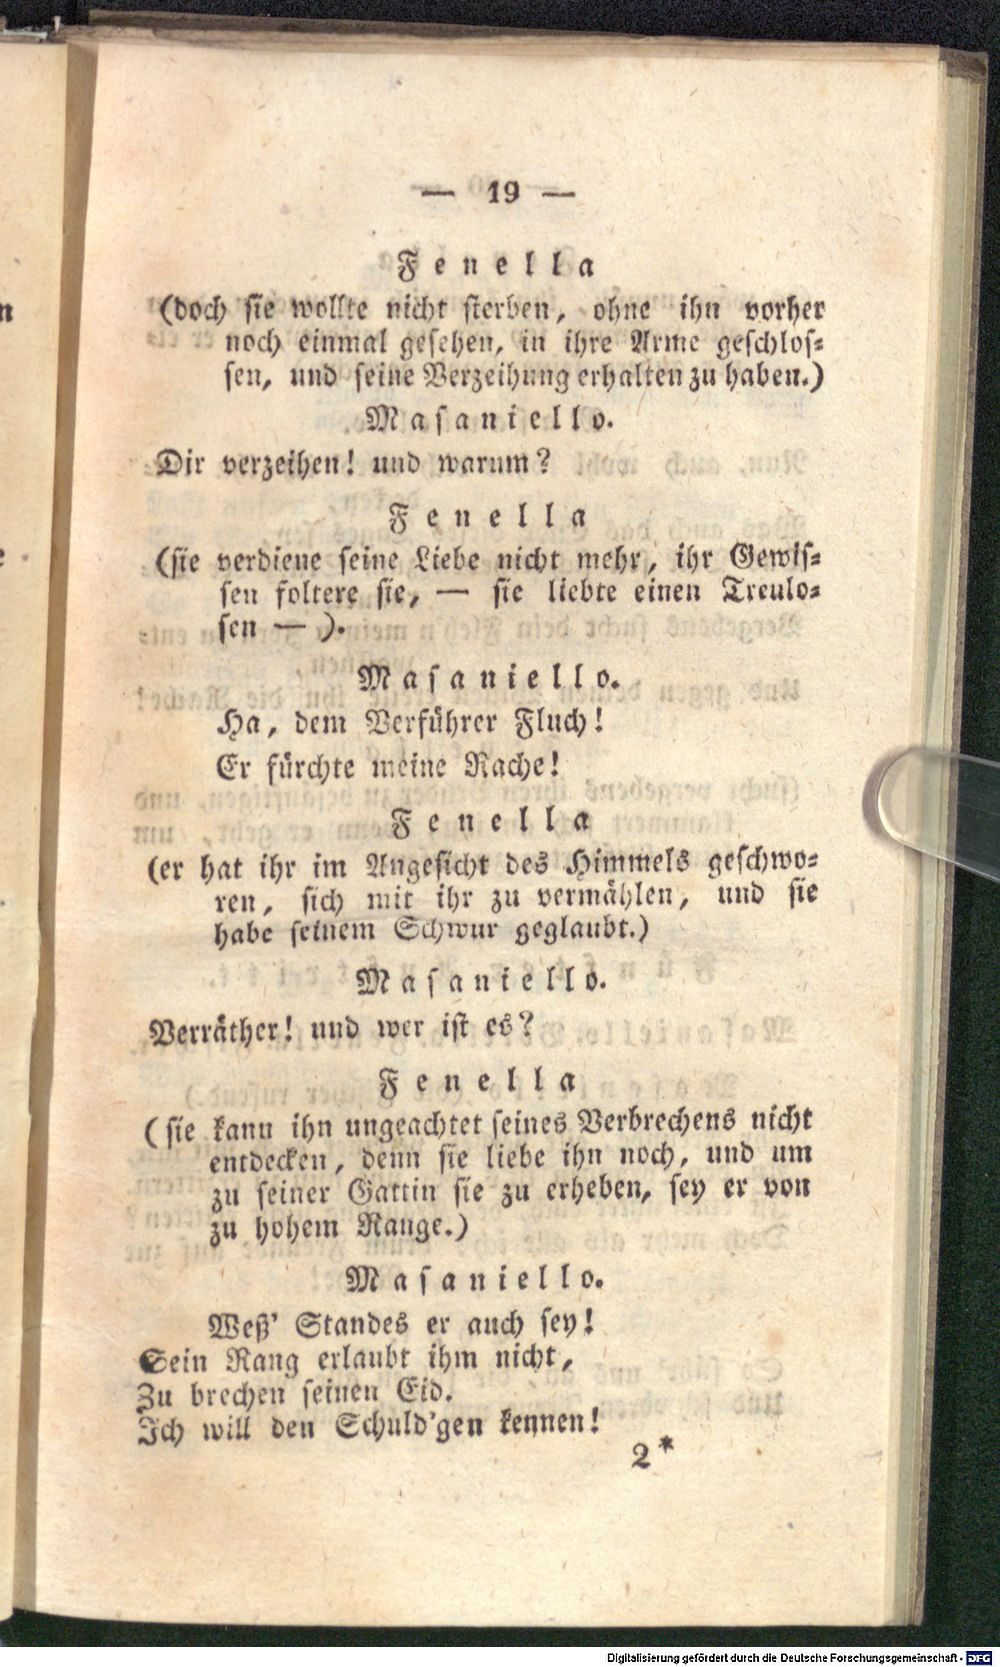 — 19 —
Fenella
(doch sie wollte nicht sterben, ohne ihn vorher
noch einmal gesehen, in ihre Arme geschlos-
sen, und seine Verzeihung erhalten zu haben.)
Masaniello.
Dir verzeihen! und warum?
Fenella
(sie verdiene seine Liebe nicht mehr, ihr Gewis-
sen foltere sie, — sie liebte einen Treulo-
sen — ).
Masaniello.
Ha, dem Verführer Fluch!
Er fürchte meine Rache!
Fenella
(er hat ihr im Angesicht des Himmels geschwo-
ren, sich mit ihr zu vermählen, und sie
habe seinem Schwur geglaubt.)
Masaniello.
Verräther! und wer ist es?
Fenella
(sie kann ihn ungeachtet seines Verbrechens nicht
entdecken, denn sie liebe ihn noch, und um
zu seiner Gattin sie zu erheben, sey er von
zu hohem Range.)
Masaniello.
Weß' Standes er auch sey!
Sein Rang erlaubt ihm nicht,
Zu brechen seinen Eid.
Ich will den Schuld'gen kennen!
2*
Digitalisierung gefördert durch die Deutsche Forschungsgemeinschaft - DFG